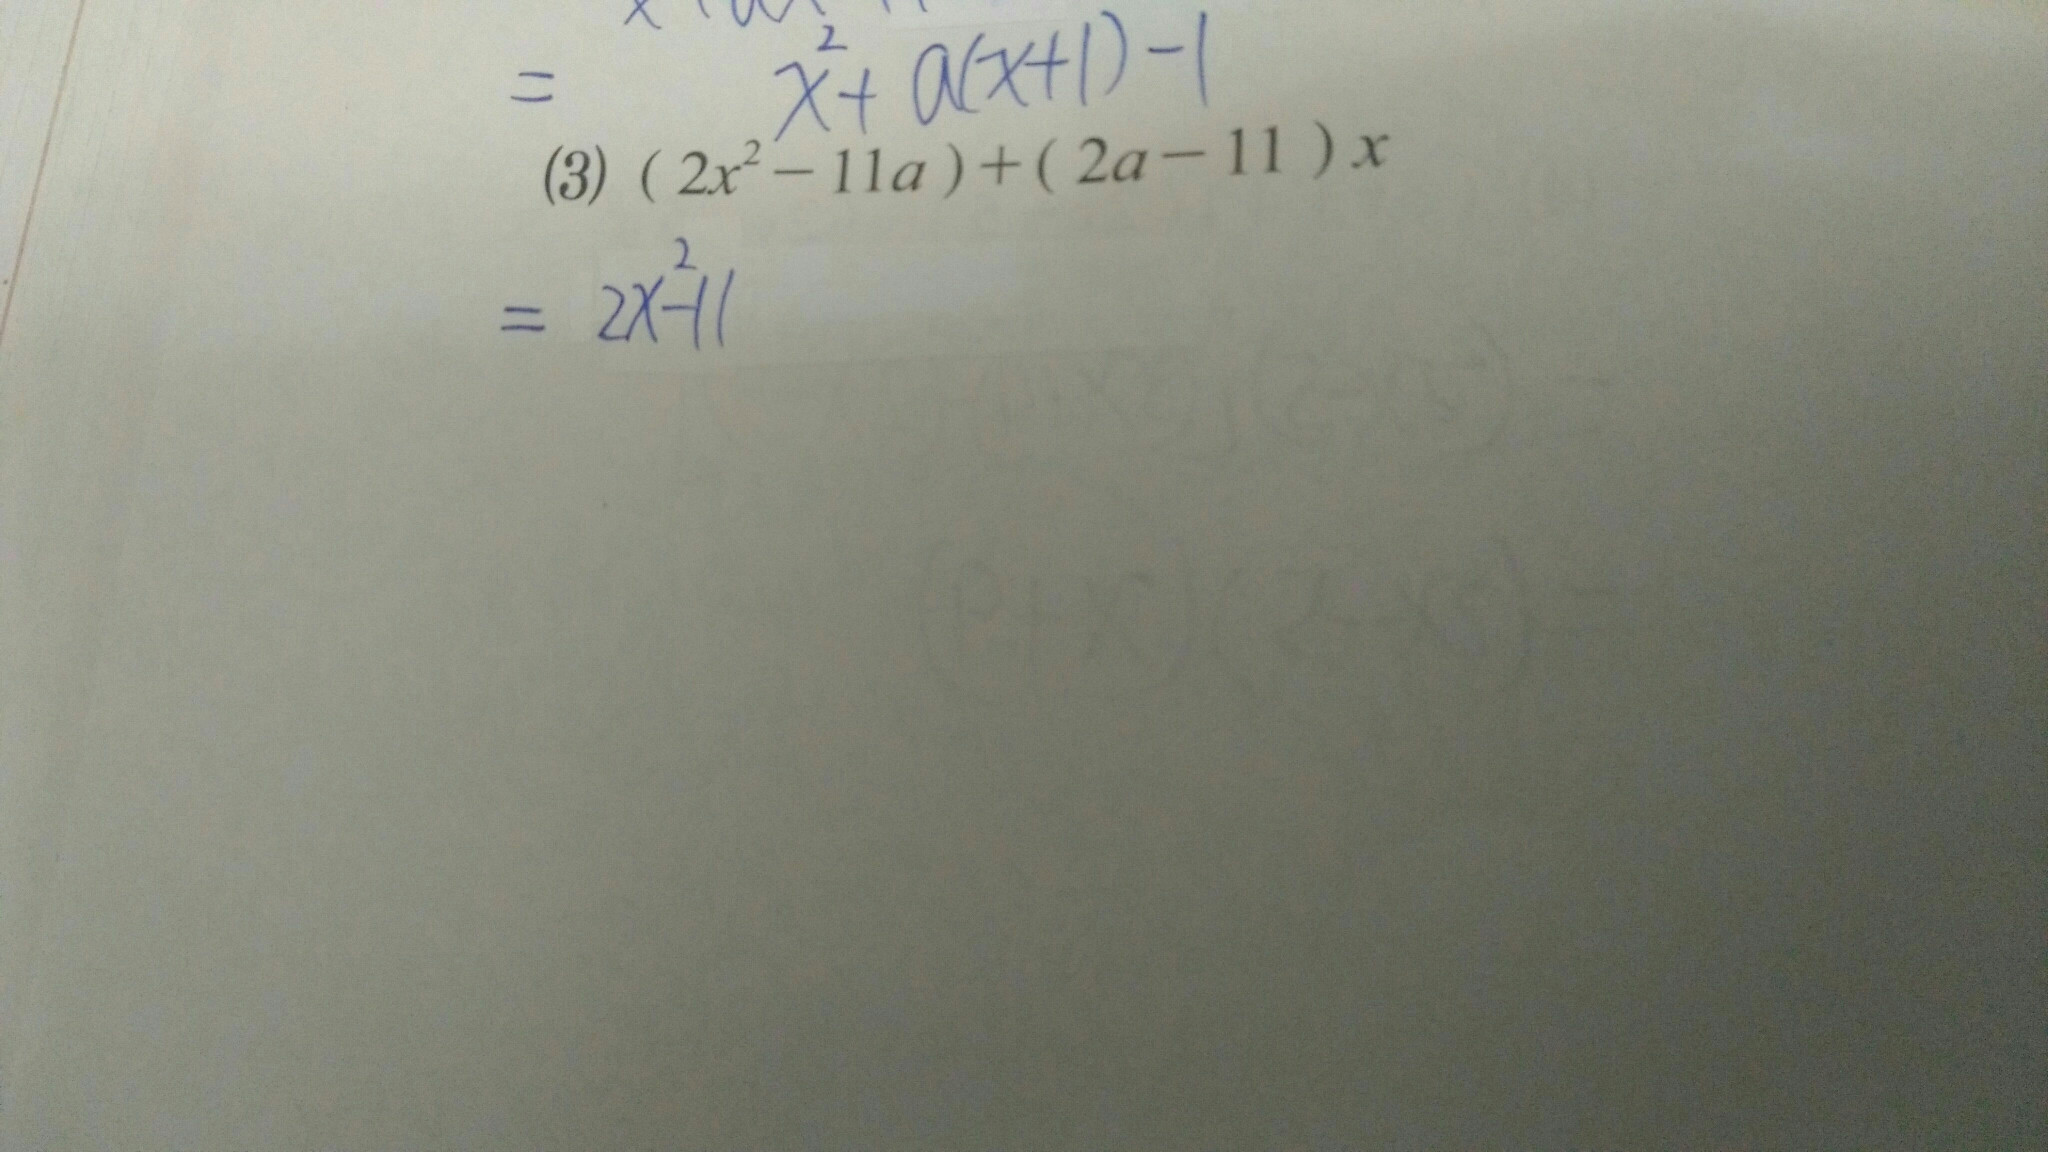 = x²+ a(x+1)-1
(3) ( 2x² − 11a ) + ( 2a − 11 ) x
= 2x²-11